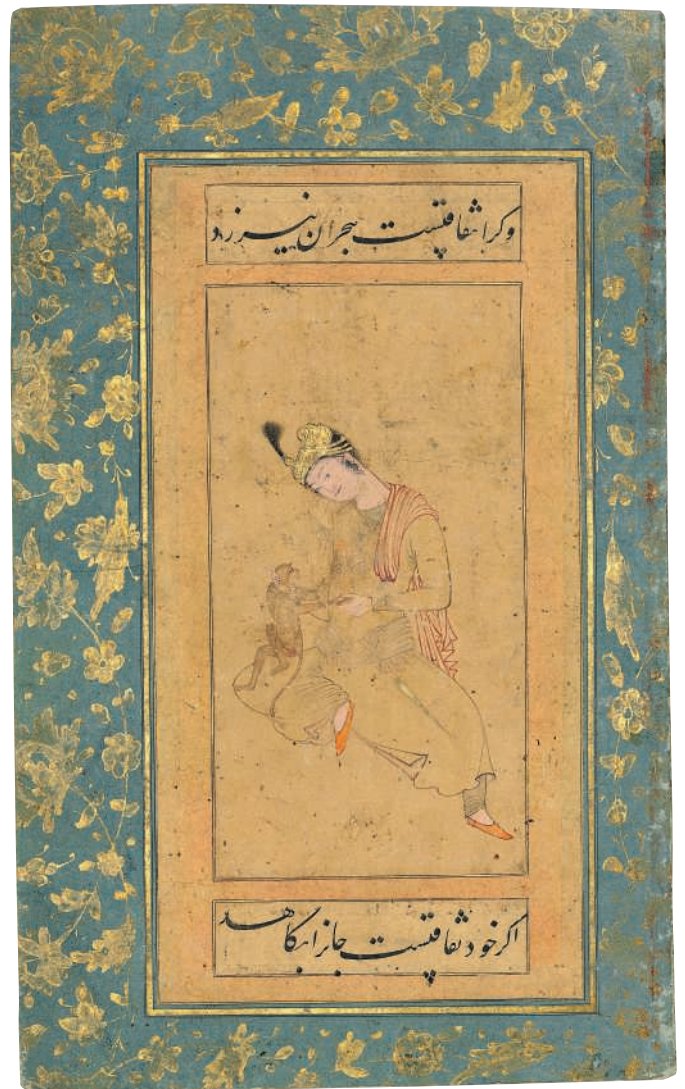 وکر اتفاقیست هجران نیرزد
اکر خود نفاقیست جانرا بکاهد